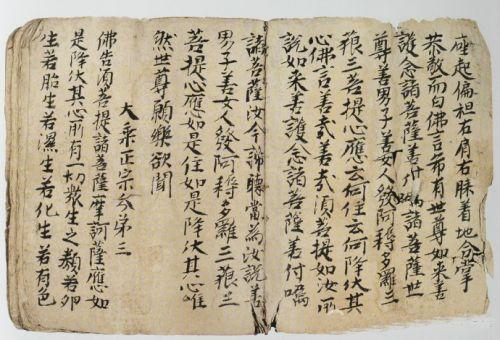 座起偏袒右肩右膝着地合掌
恭敬而白佛言希有世尊如来善
護念諸菩薩善付囑諸菩薩世
尊善男子善女人發阿耨多羅三
藐三菩提心應云何住云何降伏其
心佛言善哉善哉須菩提如汝所
說如来善護念諸菩薩善付囑
諸菩薩汝今諦聽當為汝說善
男子善女人發阿耨多羅三藐三
菩提心應如是住如是降伏其心唯
然世尊願樂欲聞
大乘正宗分第三
佛告須菩提諸菩薩摩訶薩應如
是降伏其心所有一切衆生之類若卵
生若胎生若濕生若化生若有色